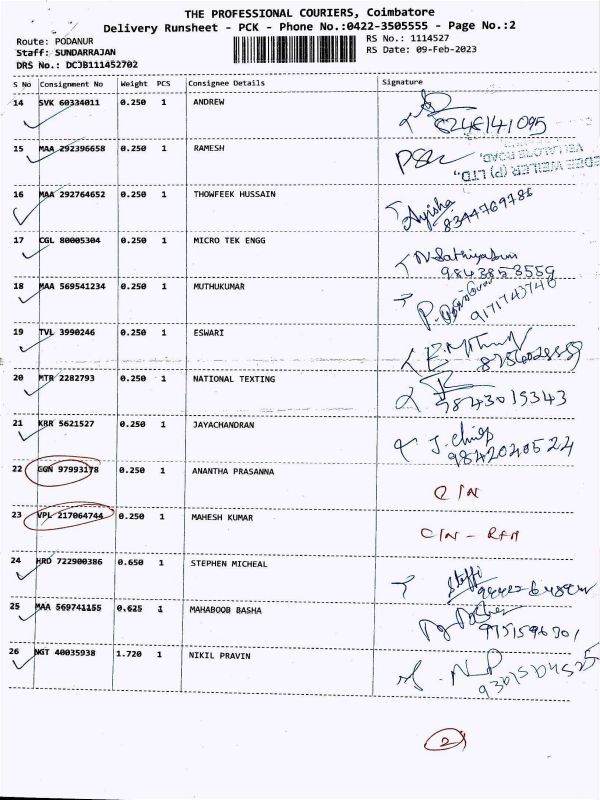 THE PROFESSIONAL COURIERS, Coimbatore
Delivery Runsheet - PCK - Phone No.:0422-3505555 - Page No.:2
Route: PODANUR RS No.: 1114527
Staff: SUNDARRAJAN RS Date: 09-Feb-2023
DRS No.: DCJB111452702
S No Consignment No Weight PCS Consignee Details Signature
14 SVK 60334011 0.250 1 ANDREW
15 MAA 292396658 0.250 1 RAMESH
VELLALORE ROAD,
(P) LTD.,
16 MAA 292764652 0.250 1 THOWFEEK HUSSAIN Ayisha
8344769786
17 CGL 80005304 0.250 1 MICRO TEK ENGG
9843853559
18 MAA 569541234 0.250 1 MUTHUKUMAR
9171743740
19 TVL 3990246 0.250 1 ESWARI
20 MTR 2282793 0.250 1 NATIONAL TEXTING
9843015343
21 KRR 5621527 0.250 1 JAYACHANDRAN
9842040524
22 GGN 97993178 0.250 1 ANANTHA PRASANNA
23 VPL 217064744 0.250 1 MAHESH KUMAR
24 HRD 722900386 0.650 1 STEPHEN MICHEAL Steffi
25 MAA 569741155 0.625 1 MAHABOOB BASHA
9751596301
26 NGT 40035938 1.720 1 NIKIL PRAVIN
2